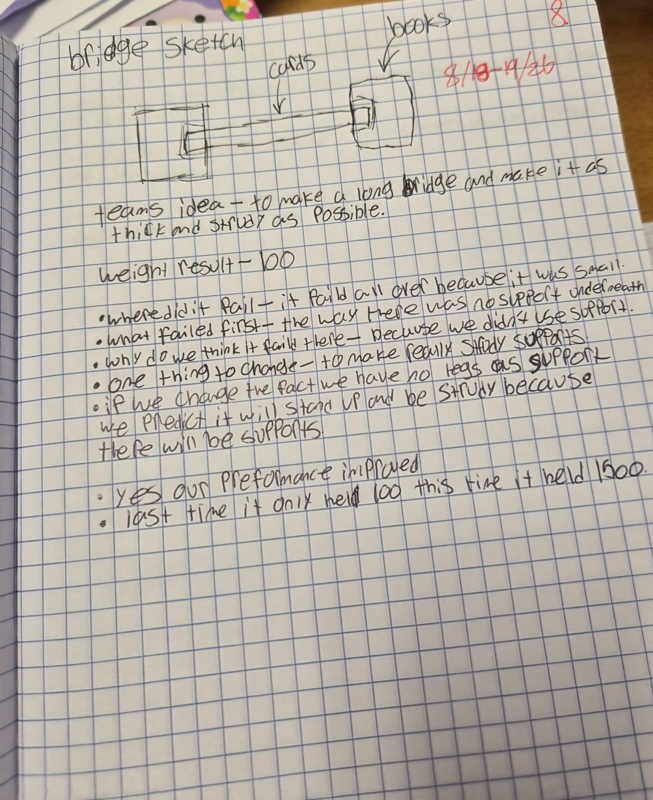 8
bridge sketch
books
cards
8/18-19/26
teams idea - to make a long bridge and make it as
thick and strudy as possible.
weight result - 100
• where did it fail - it faild all over because it was small.
• what failed first - the way there was no support underneath
• why do we think it faild there - because we didn't use support.
• one thing to change - to make really strudy supports
• if we change the fact we have no legs as support
we predict it will stand up and be strudy because
there will be supports
• yes our preformance improved
• last time it only held 100 this time it held 1500.